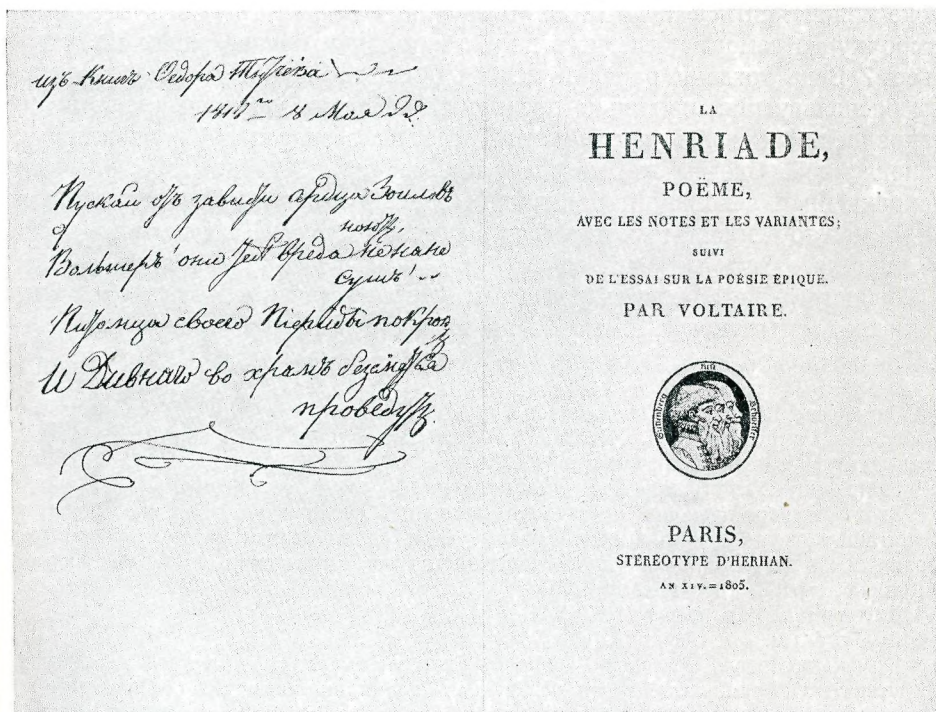 изъ Книгъ Ѳедора Тютчева
8 Мая
Пускай отъ зависти сердца Зоиловъ
ноютъ,
Вольтеръ! они тебѣ вреда не нане
сутъ!
Питомца своего Піериды покрою
тъ
И Дивнаго во храмъ безсмертья
проведутъ
LA
HENRIADE,
POËME,
AVEC LES NOTES ET LES VARIANTES;
SUIVI
DE L'ESSAI SUR LA POÉSIE ÉPIQUE.
PAR VOLTAIRE.
Gutenberg
PARIS,
STÉRÉOTYPE D'HERHAN.
AN XIV.=1805.